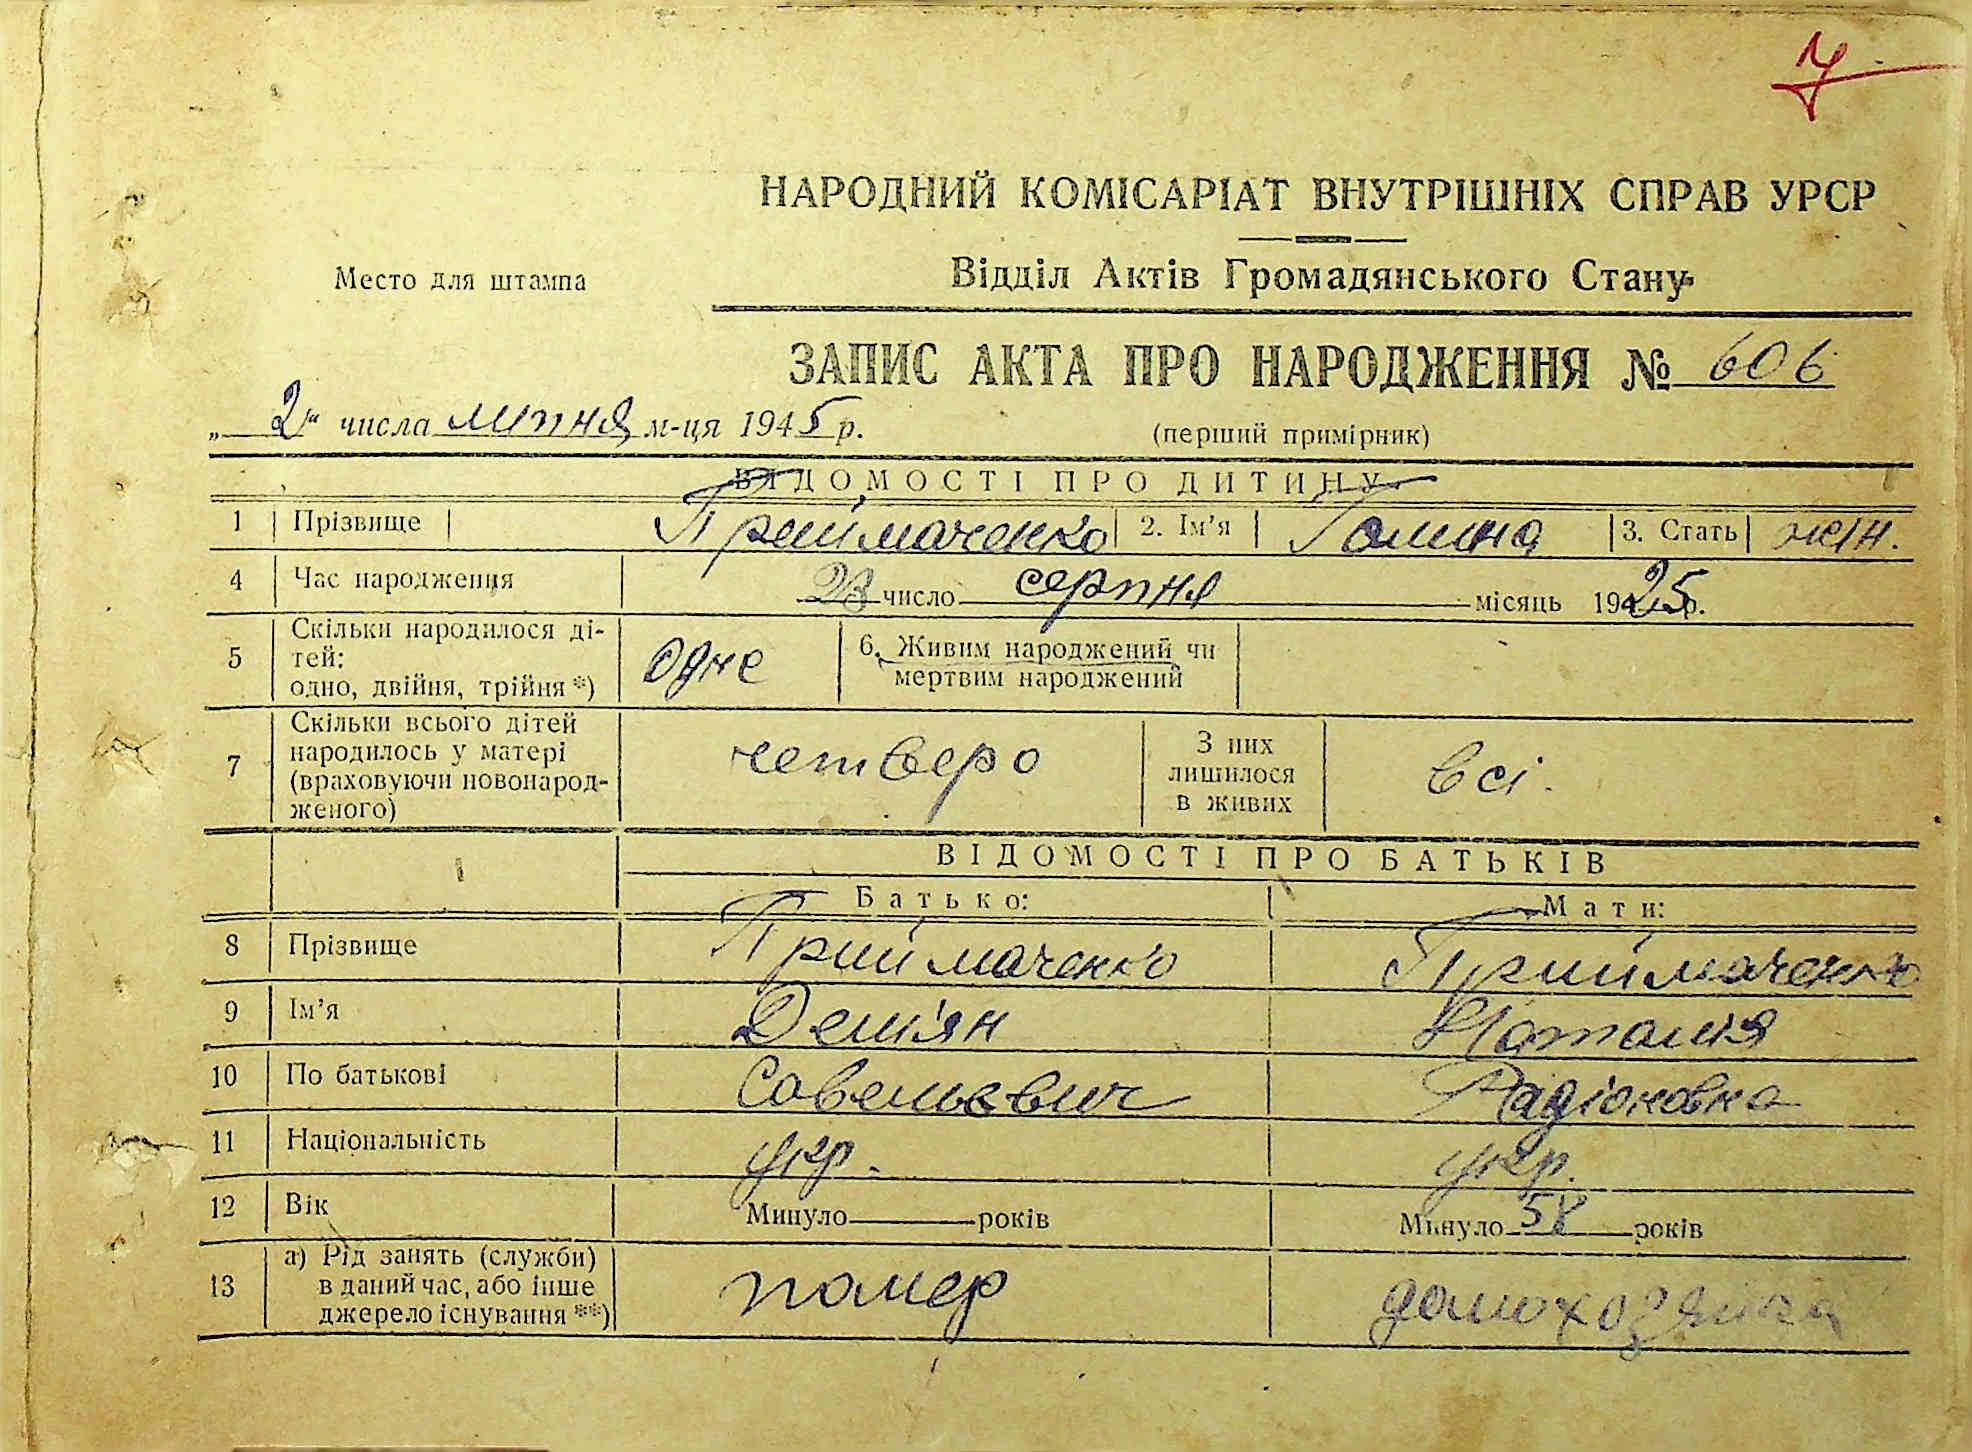 7
НАРОДНИЙ КОМІСАРІАТ ВНУТРІШНІХ СПРАВ УРСР
Место для штампа
Відділ Актів Громадянського Стану
ЗАПИС АКТА ПРО НАРОДЖЕННЯ № 606
„ 2 " числа липня м-ця 1945 р.
(перший примірник)
ВІДОМОСТІ ПРО ДИТИНУ
1 Прізвище Приймаченко 2. Ім'я Галина 3. Стать жін.
4 Час народження 23 число серпня місяць 1925 р.
5 Скільки народилося ді-
тей:
одно, двійня, трійня *) одне
6. Живим народжений чи
мертвим народжений
7 Скільки всього дітей
народилось у матері
(враховуючи новонарод-
женого) четверо
З них
лишилося
в живих всі.
ВІДОМОСТІ ПРО БАТЬКІВ
Батько: Мати:
8 Прізвище Приймаченко Приймаченко
9 Ім'я Дем'ян Наталія
10 По батькові Савельєвич Радіоновна
11 Національність укр. укр.
12 Вік Минуло років Минуло 58 років
13 а) Рід занять (служби)
в даний час, або інше
джерело існування **) помер домохозяйка